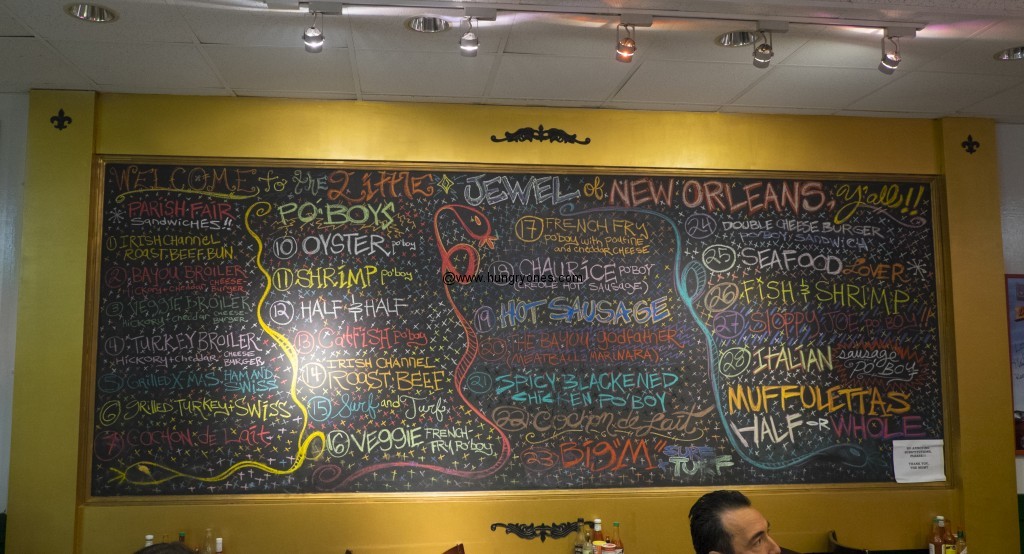 WELCOME to the Little JEWEL of NEW ORLEANS, y'all!!
PARISH-FAIR
SANDWICHES!!
1 IRISH CHANNEL
ROAST BEEF BUN
2 BAYOU BROILER
3 VEGGIE BROILER
4 TURKEY BROILER
HICKORY + cheddar CHEESE
BURGER
5 GRILLED X MAS HAM AND
SWISS
6 GRILLED TURKEY + SWISS
7 COCHON de LAIT
PO'BOYS
10 OYSTER po'boy
11 SHRIMP po'boy
12 HALF & HALF
13 CATFISH Po'boy
14 IRISH CHANNEL
ROAST BEEF
15 Surf and Turf
16 VEGGIE FRENCH-
FRY PO'BOY
17 FRENCH FRY
po'boy with poutine
and cheddar CHEESE
18 CHAURICE PO'BOY
(CREOLE HOT SAUSAGE)
19 HOT SAUSAGE
20 THE BAYOU GODFATHER
(MEATBALL MARINARA)
21 SPICY BLACKENED
CHICKEN PO'BOY
22 Cochon de Lait
23 BIG "M" SURF
TURF
24 DOUBLE CHEESE BURGER
25 SEAFOOD LOVER
26 FISH & SHRIMP
27 SLOPPY JOE
28 ITALIAN sausage
PO'BOY
MUFFULETTAS
HALF OR WHOLE
THANK YOU,
@www.hungryones.com